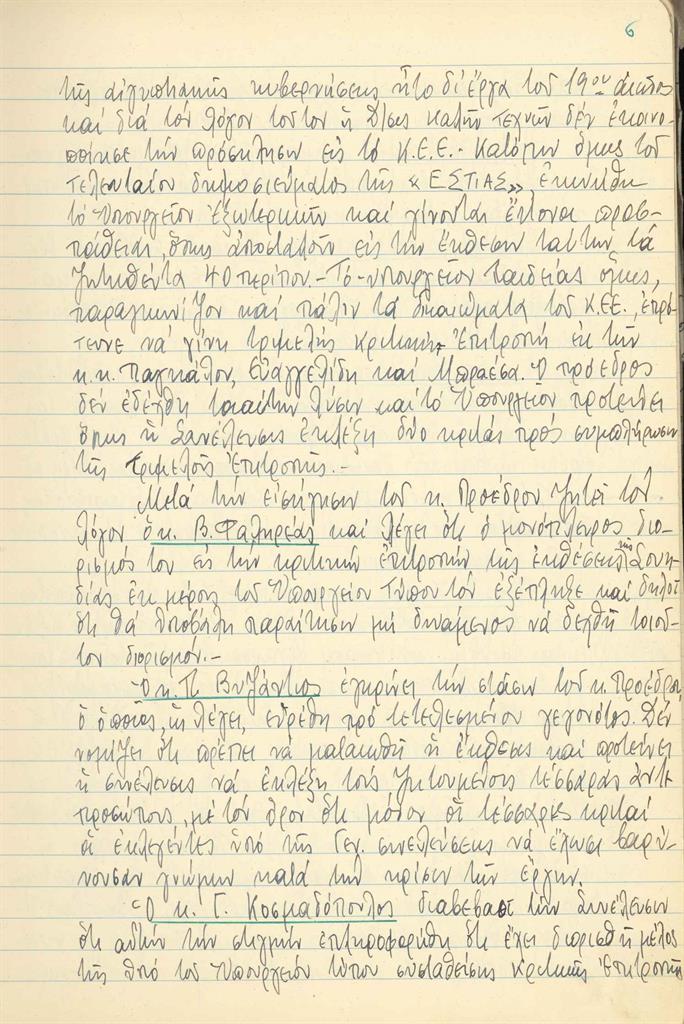 6
τῆς αἰγυπτιακῆς κυβερνήσεως ἦτο δι' ἔργα τοῦ 19ου αἰῶνος
καί διά τόν λόγον τοῦτον ἡ Δ/σις καλῶν τεχνῶν δέν ἐκοινο-
ποίησε τήν πρόσκλησιν εἰς τό Κ.Ε.Ε.- Κατόπιν ὅμως τοῦ
τελευταίου δημοσιεύματος τῆς « ΕΣΤΙΑΣ », ἐκινήθη
τό Ὑπουργεῖον Ἐξωτερικῶν καί γίνονται ἔντονοι προσ-
πάθειαι, ὅπως ἀποσταλοῦν εἰς τήν ἔκθεσιν ταύτην τά
ζητηθέντα 40 περίπου.- Τό ὑπουργεῖον Παιδείας ὅμως,
παραγκωνίζον καί πάλιν τά δικαιώματα τοῦ Κ.Ε.Ε., ἐπρό-
τεινε νά γίνῃ τριμελής κριτική Ἐπιτροπή ἐκ τῶν
κ.κ. Παγκάλου, Εὐαγγελίδη καί Μπραέσα. Ὁ πρόεδρος
δέν ἐδέχθη τοιαύτην λύσιν καί τό Ὑπουργεῖον προτείνει
ὅπως ἡ Συνέλευσις ἐκλέξῃ δύο κριτάς πρός συμπλήρωσιν
τῆς τριμελοῦς Ἐπιτροπῆς.-
Μετά τήν εἰσήγησιν τοῦ κ. Προέδρου ζητεῖ τόν
λόγον ὁ κ. Β. Φαληρέας καί λέγει ὅτι ὁ μονόπλευρος διο-
ρισμός του εἰς τήν κριτικήν ἐπιτροπήν τῆς ἐκθέσεως τῆς Σουη-
δίας ἐκ μέρους τοῦ Ὑπουργείου Τύπου τόν ἐξέπληξε καί δηλοῖ
ὅτι θά ὑποβάλῃ παραίτησιν μή δυνάμενος νά δεχθῇ τοιοῦ-
τον διορισμόν.-
Ὁ κ. Π. Βυζάντιος ἐγκρίνει τήν στάσιν τοῦ κ. Προέδρου,
ὁ ὁποῖος, ὡς λέγει, εὑρέθη πρό τετελεσμένου γεγονότος. Δέν
νομίζει ὅτι πρέπει νά ματαιωθῇ ἡ ἔκθεσις καί προτείνει
ἡ συνέλευσις νά ἐκλέξῃ τούς ζητουμένους τέσσαρας ἀντι-
προσώπους, μέ τόν ὅρον ὅτι μόνον οἱ τέσσαρες κριταί
οἱ ἐκλεγέντες ὑπό τῆς Γεν. συνελεύσεως νά ἔχωσι βαρύ-
νουσαν γνώμην κατά τήν κρίσιν τῶν ἔργων.
Ὁ κ. Γ. Κοσμαδόπουλος διαβεβαιοῖ τήν Συνέλευσιν
ὅτι αὐτήν τήν στιγμήν ἐπληροφορήθη ὅτι ἔχει διορισθῆ μέλος
τῆς ὑπό τοῦ Ὑπουργείου τύπου συσταθείσης κριτικῆς Ἐπιτροπῆς